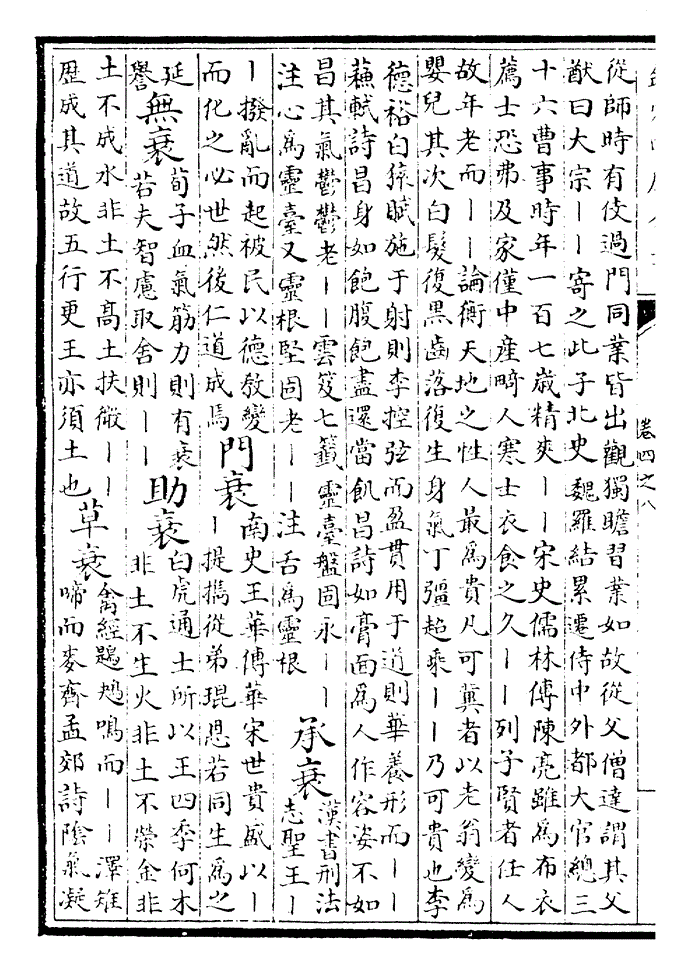 卷四之八
從師時有伎過門同業皆出觀獨瞻習業如故從父僧達謂其父
猷曰大宗丨丨寄之此子北史魏羅結累遷侍中外都大官總三
十六曹事時年一百七歲精爽丨丨宋史儒林傳陳亮雖為布衣
薦士恐弗及家僅中産畸人寒士衣食之久丨丨列子賢者任人
故年老而丨丨論衡天地之性人最為貴凡可冀者以老翁變為
嬰兒其次白髮復黑齒落復生身氣丁彊超乘丨丨乃可貴也李
德裕白猿賦施于射則李控弦而盈貫用于道則華養形而丨丨
蘇軾詩昌身如飽腹飽盡還當飢昌詩如膏面為人作容姿不如
昌其氣鬱鬱老丨丨雲笈七籤靈臺盤固永丨丨
注心為靈臺又靈根堅固老丨丨注舌為靈根
承衰
漢書刑法
志聖王丨
丨撥亂而起被民以德教變
而化之必世然後仁道成焉
門衰
南史王華傳華宋世貴盛以丨
丨提攜從弟琨恩若同生為之
延
譽
無衰
荀子血氣筋力則有衰
若夫智慮取舍則丨丨
助衰
白虎通土所以王四季何木
非土不生火非土不榮金非
土不成水非土不髙土扶微丨丨
歴成其道故五行更王亦須土也
草衰
禽經鶗鴂鳴而丨丨澤雉
啼而麥齊孟郊詩陰氣凝